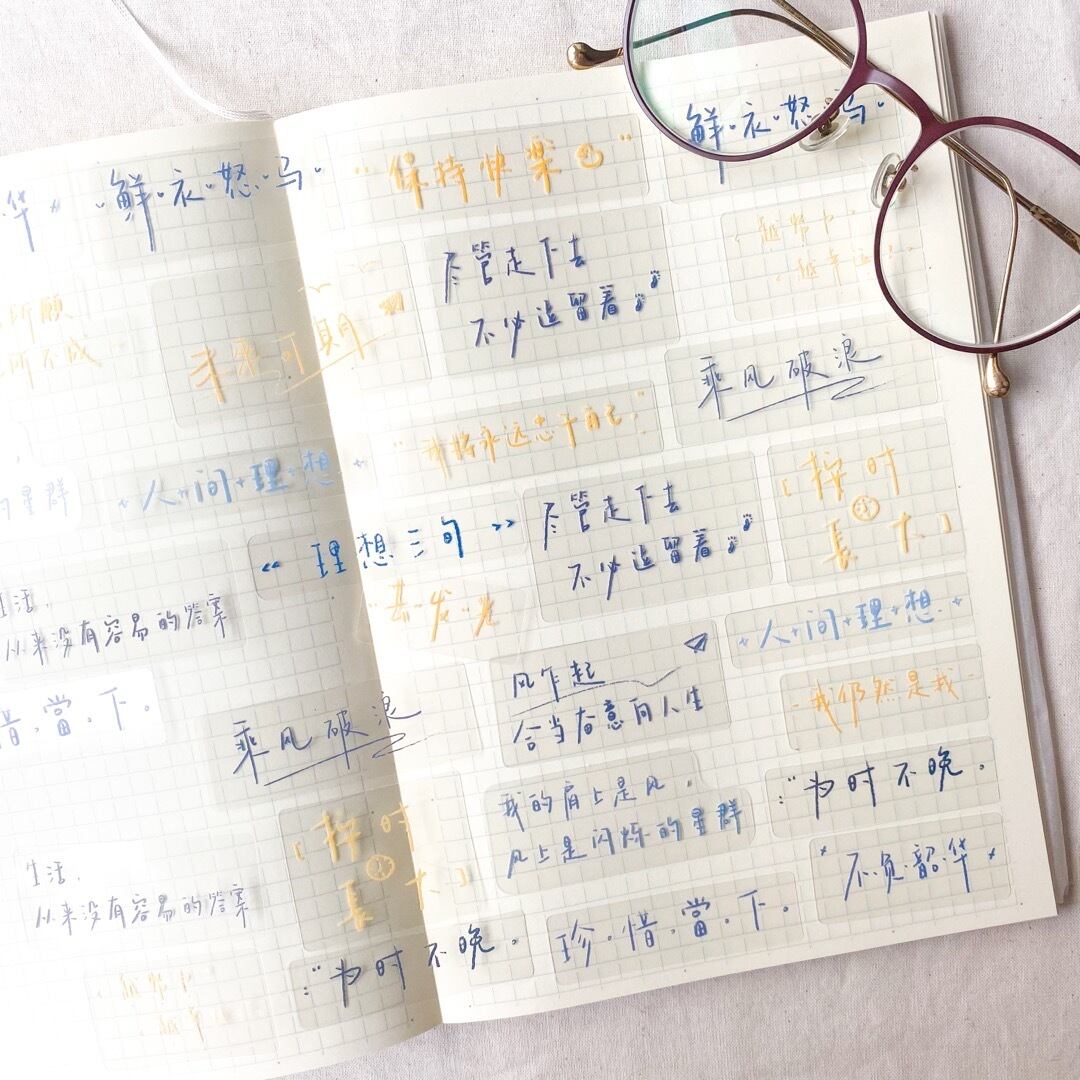 华
鲜·衣·怒·马·
所愿
所不成
未来可期
人+间+理+想
的星群
生活,
从来没有容易的答案
惜·當·下。
乘风破浪
「按时
长大」
生活,
从来没有容易的答案
:"为时不晚。
越努力
越幸运
"保持快樂"
鲜·衣·怒·马·
尽管走下去
不必逗留着
越努力,
越幸运!
乘风破浪
"我将永远忠于自己."
«理想三句»
尽管走下去
不必逗留着
「按时
長大」
发·光
人+间+理+想
风乍起
合当奋意向人生
-我仍然是我-
我的肩上是风,
风上是闪烁的星群
:"为时不晚。
不负·韶·华
珍·惜·當·下。